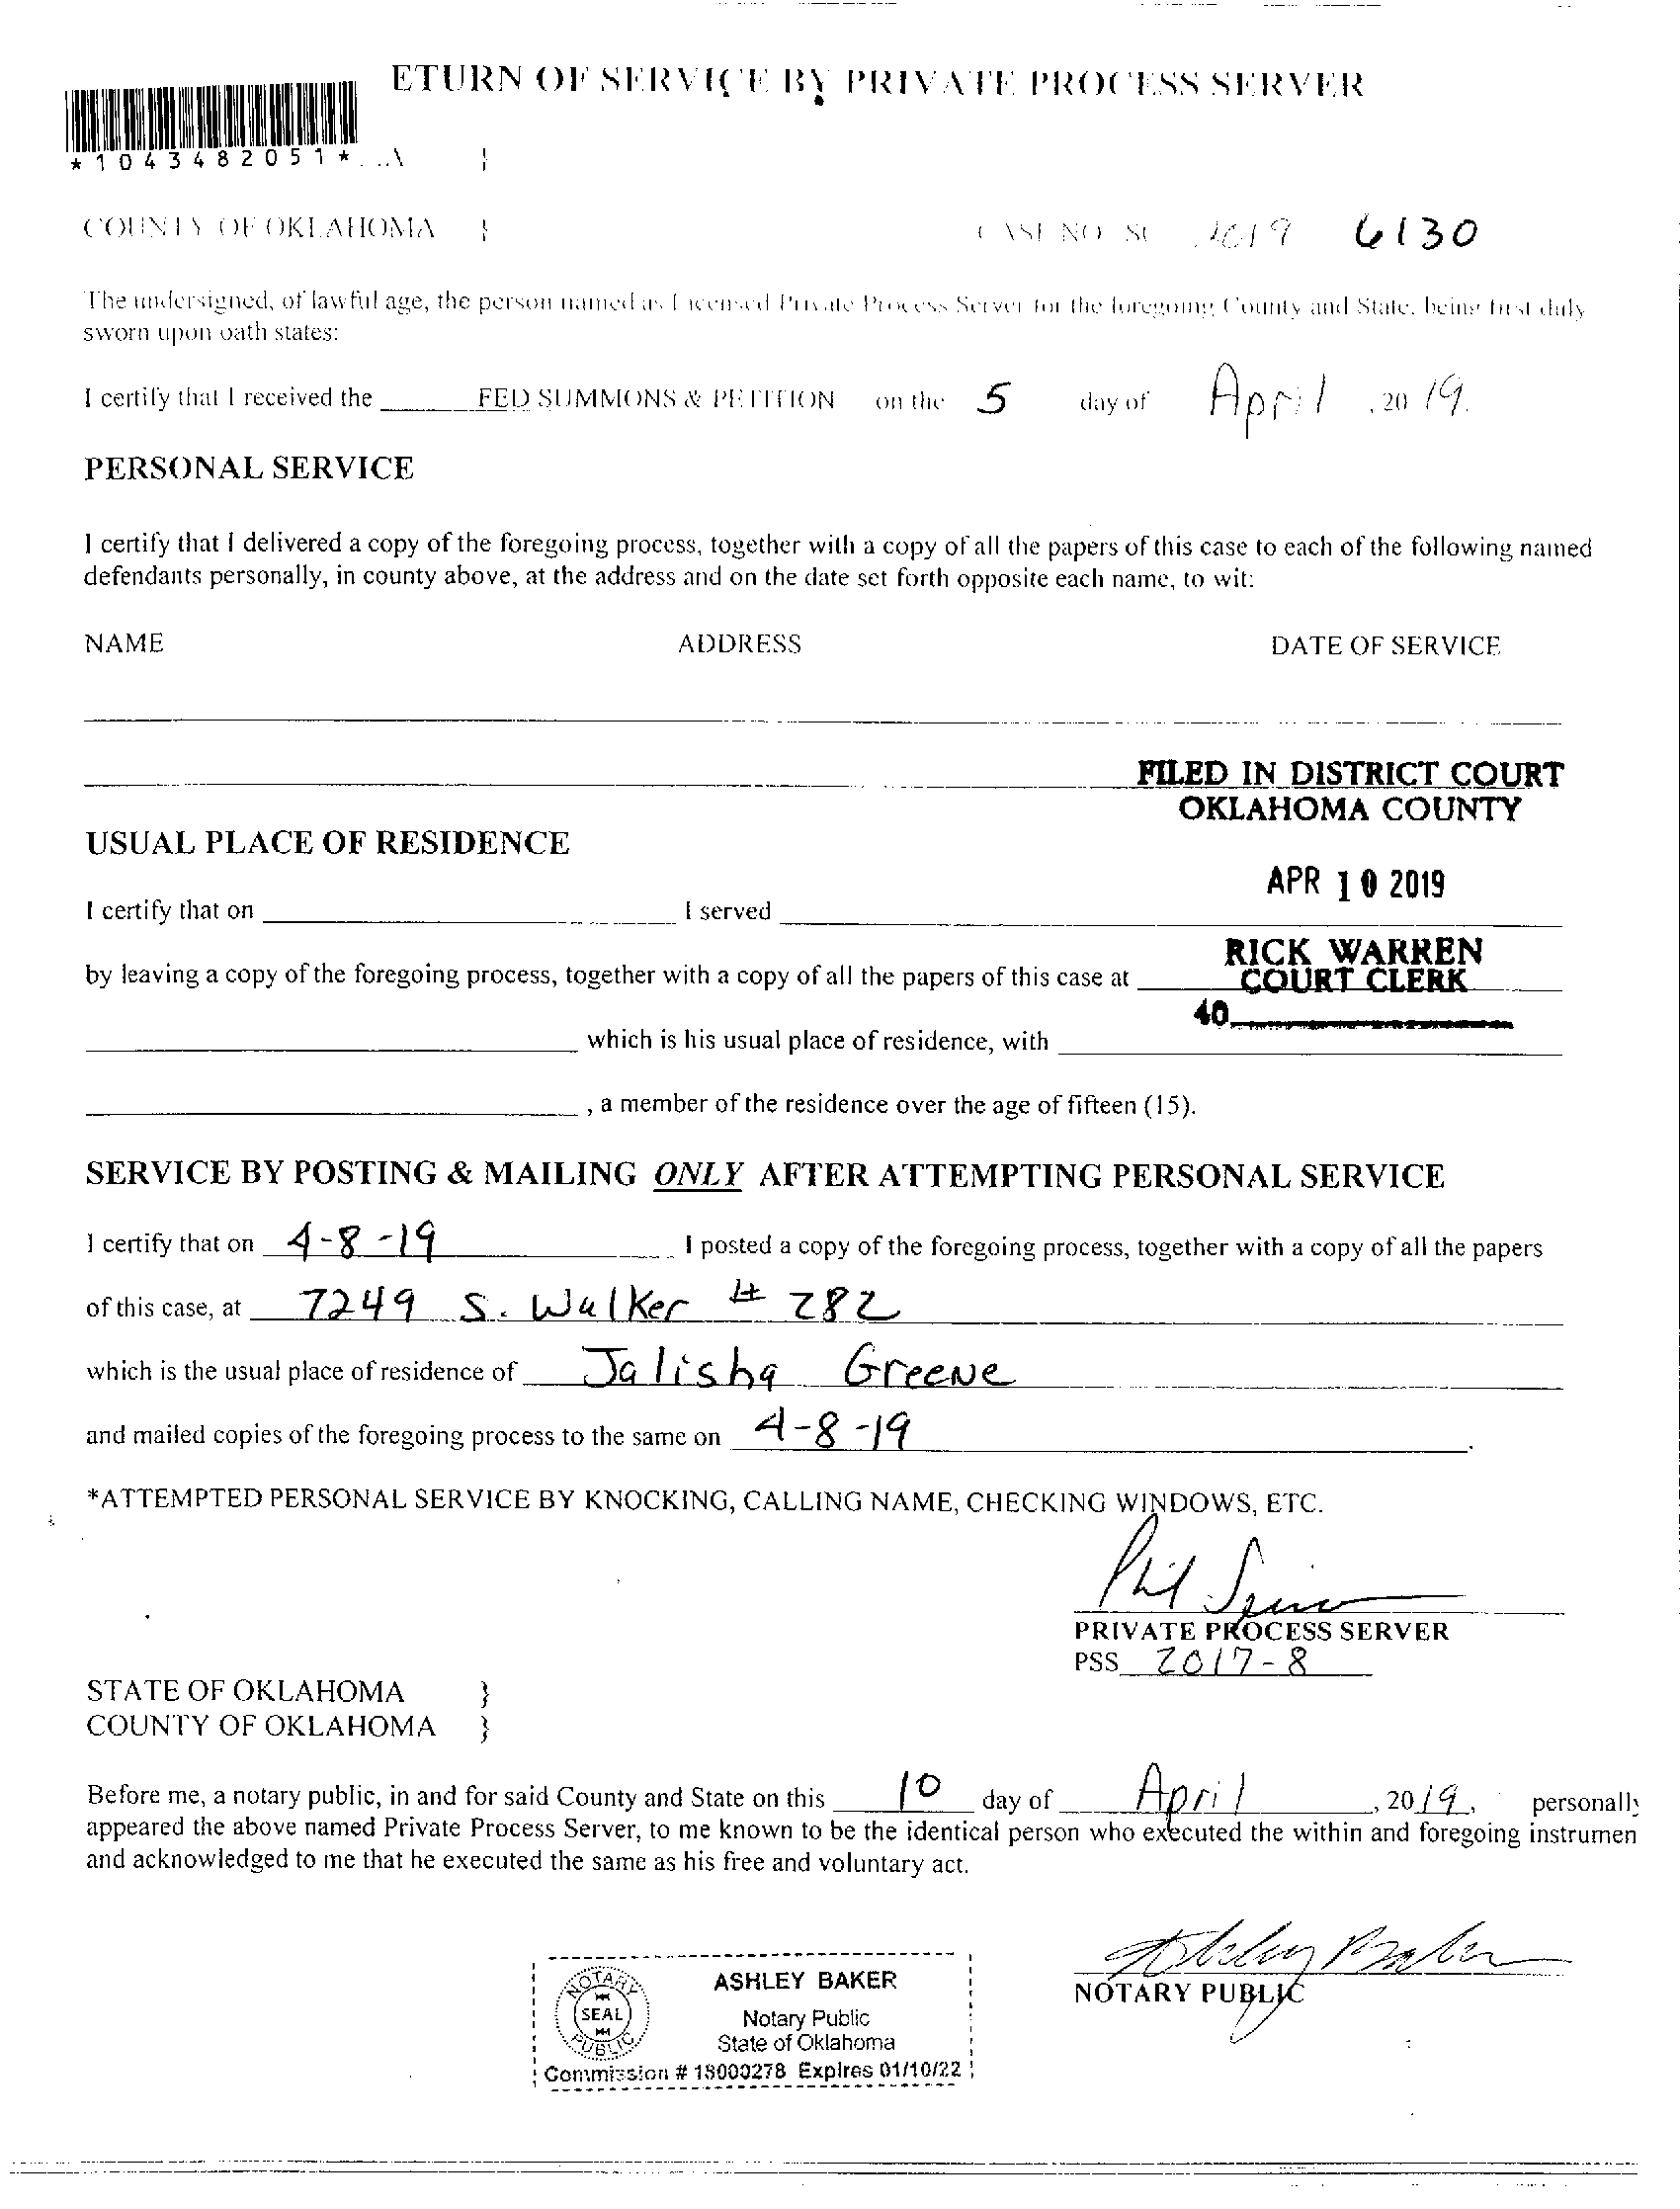 ETURN OF SERVICE BY PRIVATE PROCESS SERVER
*1043482051*
COUNTY OF OKLAHOMA } CASE NO. SC 2019 6130
The undersigned, of lawful age, the person named as Licensed Private Process Server for the foregoing County and State, being first duly
sworn upon oath states:
I certify that I received the FED SUMMONS & PETITION on the 5 day of April , 20 19.
PERSONAL SERVICE
I certify that I delivered a copy of the foregoing process, together with a copy of all the papers of this case to each of the following named
defendants personally, in county above, at the address and on the date set forth opposite each name, to wit:
NAME ADDRESS DATE OF SERVICE
FILED IN DISTRICT COURT
OKLAHOMA COUNTY
USUAL PLACE OF RESIDENCE
APR 10 2019
I certify that on I served
RICK WARREN
by leaving a copy of the foregoing process, together with a copy of all the papers of this case at
COURT CLERK
40
which is his usual place of residence, with
, a member of the residence over the age of fifteen (15).
SERVICE BY POSTING & MAILING ONLY AFTER ATTEMPTING PERSONAL SERVICE
I certify that on 4-8-19 I posted a copy of the foregoing process, together with a copy of all the papers
of this case, at 7249 S. Walker # 282
which is the usual place of residence of Jalisha Greene
and mailed copies of the foregoing process to the same on 4-8-19.
*ATTEMPTED PERSONAL SERVICE BY KNOCKING, CALLING NAME, CHECKING WINDOWS, ETC.
Phil
PRIVATE PROCESS SERVER
PSS 2017-8
STATE OF OKLAHOMA }
COUNTY OF OKLAHOMA }
Before me, a notary public, in and for said County and State on this 10 day of April , 20 19, personally
appeared the above named Private Process Server, to me known to be the identical person who executed the within and foregoing instrumen
and acknowledged to me that he executed the same as his free and voluntary act.
Ashley Baker
NOTARY PUBLIC
NOTARY SEAL PUBLIC
ASHLEY BAKER
Notary Public
State of Oklahoma
Commission # 18000278 Expires 01/10/22